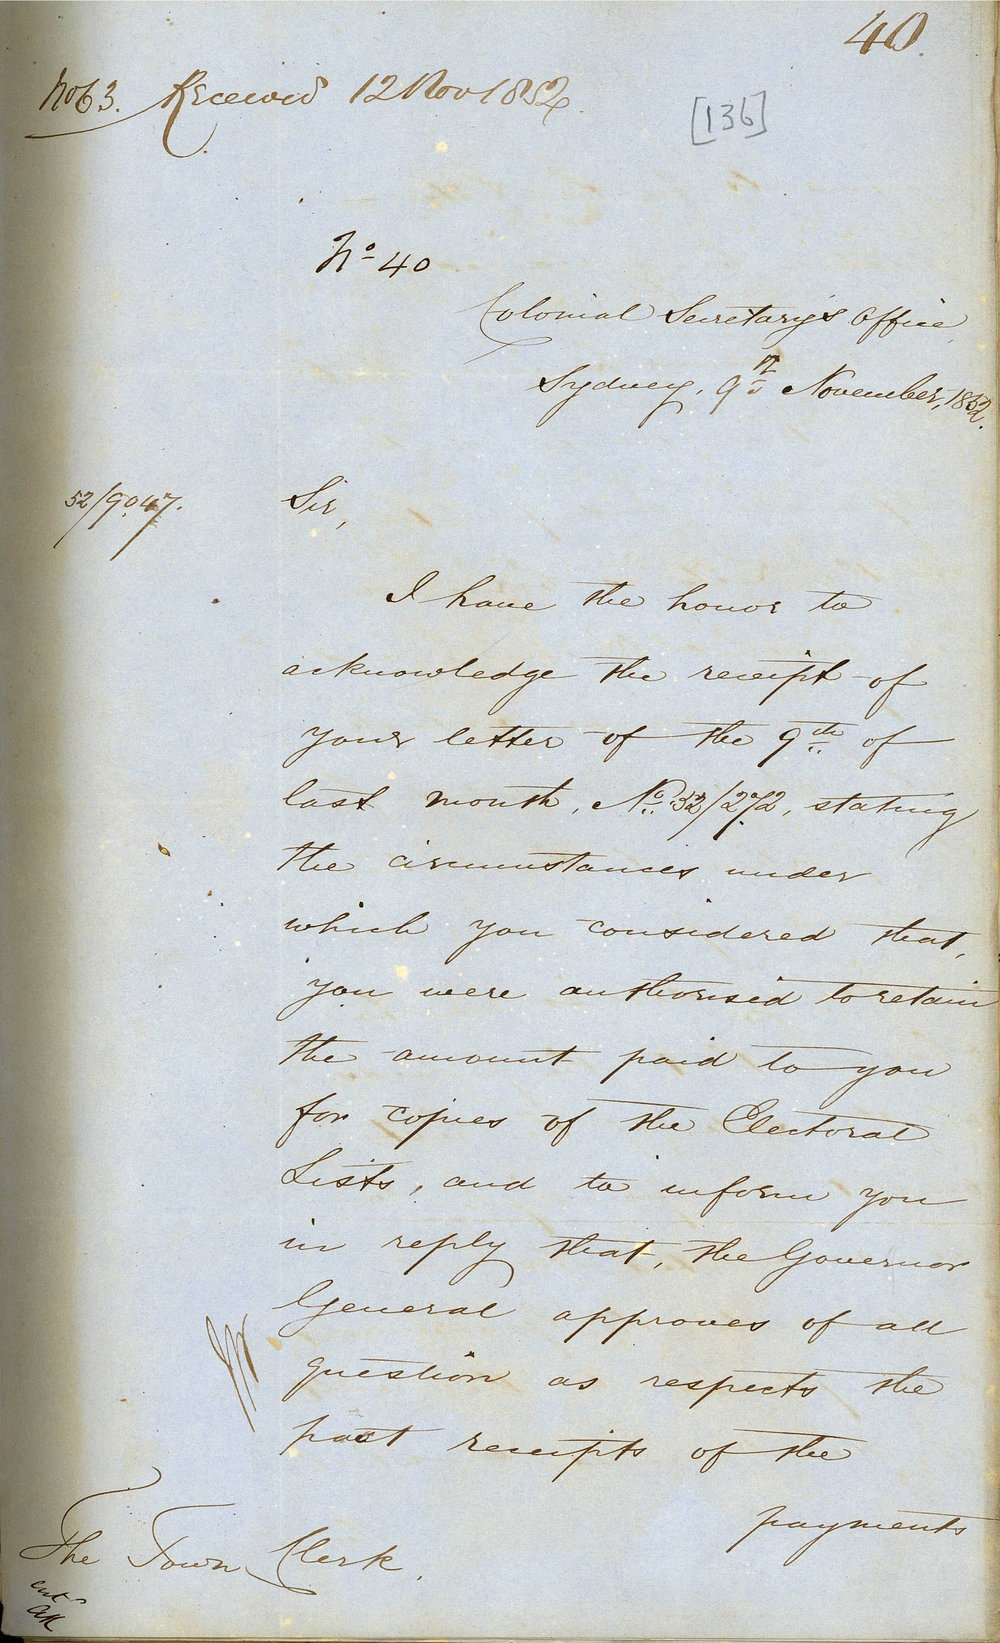 40.
No 63. Received 12 Nov 1852.
[136]
No 40
Colonial Secretary's Office,
Sydney, 9th November, 1852.
52/9047.
Sir,
I have the honor to
acknowledge the receipt of
your letter of the 9th of
last month, No. 52/272, stating
the circumstances under
which you considered that,
you were authorised to retain
the amount paid to you
for copies of the Electoral
Lists, and to inform you
in reply that, the Governor
General approves of all
question as respects the
past receipts of the
payments
The Town Clerk.